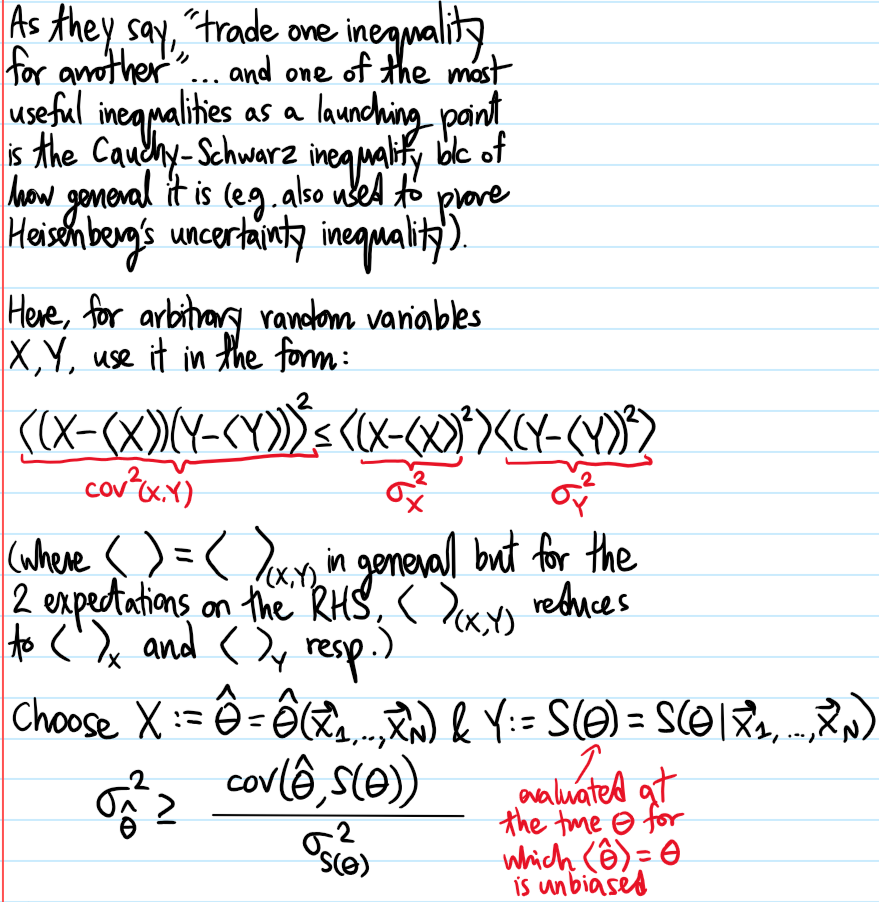 As they say, "trade one inequality
for another"... and one of the most
useful inequalities as a launching point
is the Cauchy-Schwarz inequality b/c of
how general it is (e.g. also used to prove
Heisenberg's uncertainty inequality).
Here, for arbitrary random variables
X,Y, use it in the form:
⟨(X-⟨X⟩)(Y-⟨Y⟩)⟩² ≤ ⟨(X-⟨X⟩)²⟩⟨(Y-⟨Y⟩)²⟩
cov²(X,Y) σ_X² σ_Y²
(where ⟨ ⟩ = ⟨ ⟩_(X,Y) in general but for the
2 expectations on the RHS, ⟨ ⟩_(X,Y) reduces
to ⟨ ⟩_X and ⟨ ⟩_Y resp.)
Choose X := θ̂ = θ̂(x⃗_1,...,x⃗_N) & Y := S(θ) = S(θ|x⃗_1,...,x⃗_N)
σ_θ̂² ≥ cov(θ̂, S(θ)) / σ_S(θ)²
evaluated at
the true θ for
which ⟨θ̂⟩ = θ
is unbiased